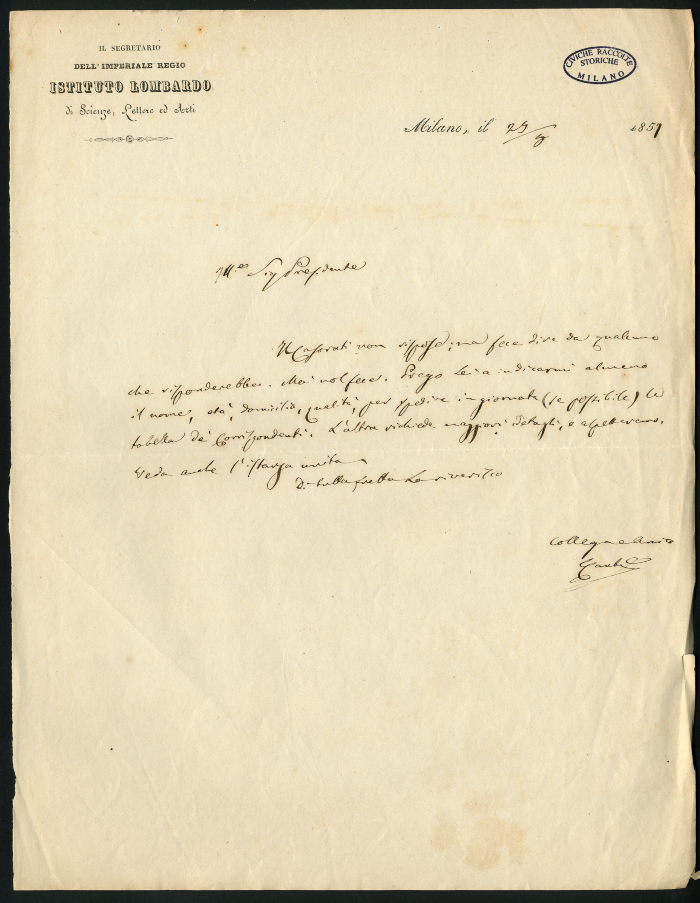 IL SEGRETARIO
DELL' IMPERIALE REGIO
ISTITUTO LOMBARDO
di Scienze, Lettere ed Arti
CIVICHE RACCOLTE
STORICHE
MILANO
Milano, il 29/8 1851
Ill.e Sig Presidente
Il Casorati non rispose; ma fece dire da qualcuno
che risponderebbe. Mai nol fece. Prego Lei a indicarmi almeno
il nome, età, domicilio, qualità, per spedire in giornata (se possibile) la
tabella de' Corrispondenti. L'altra richiede maggiori dettagli, e aspetteremo.
Veda anche l'istanza unita
Di tutta fretta La riverisco
Collega e Amico